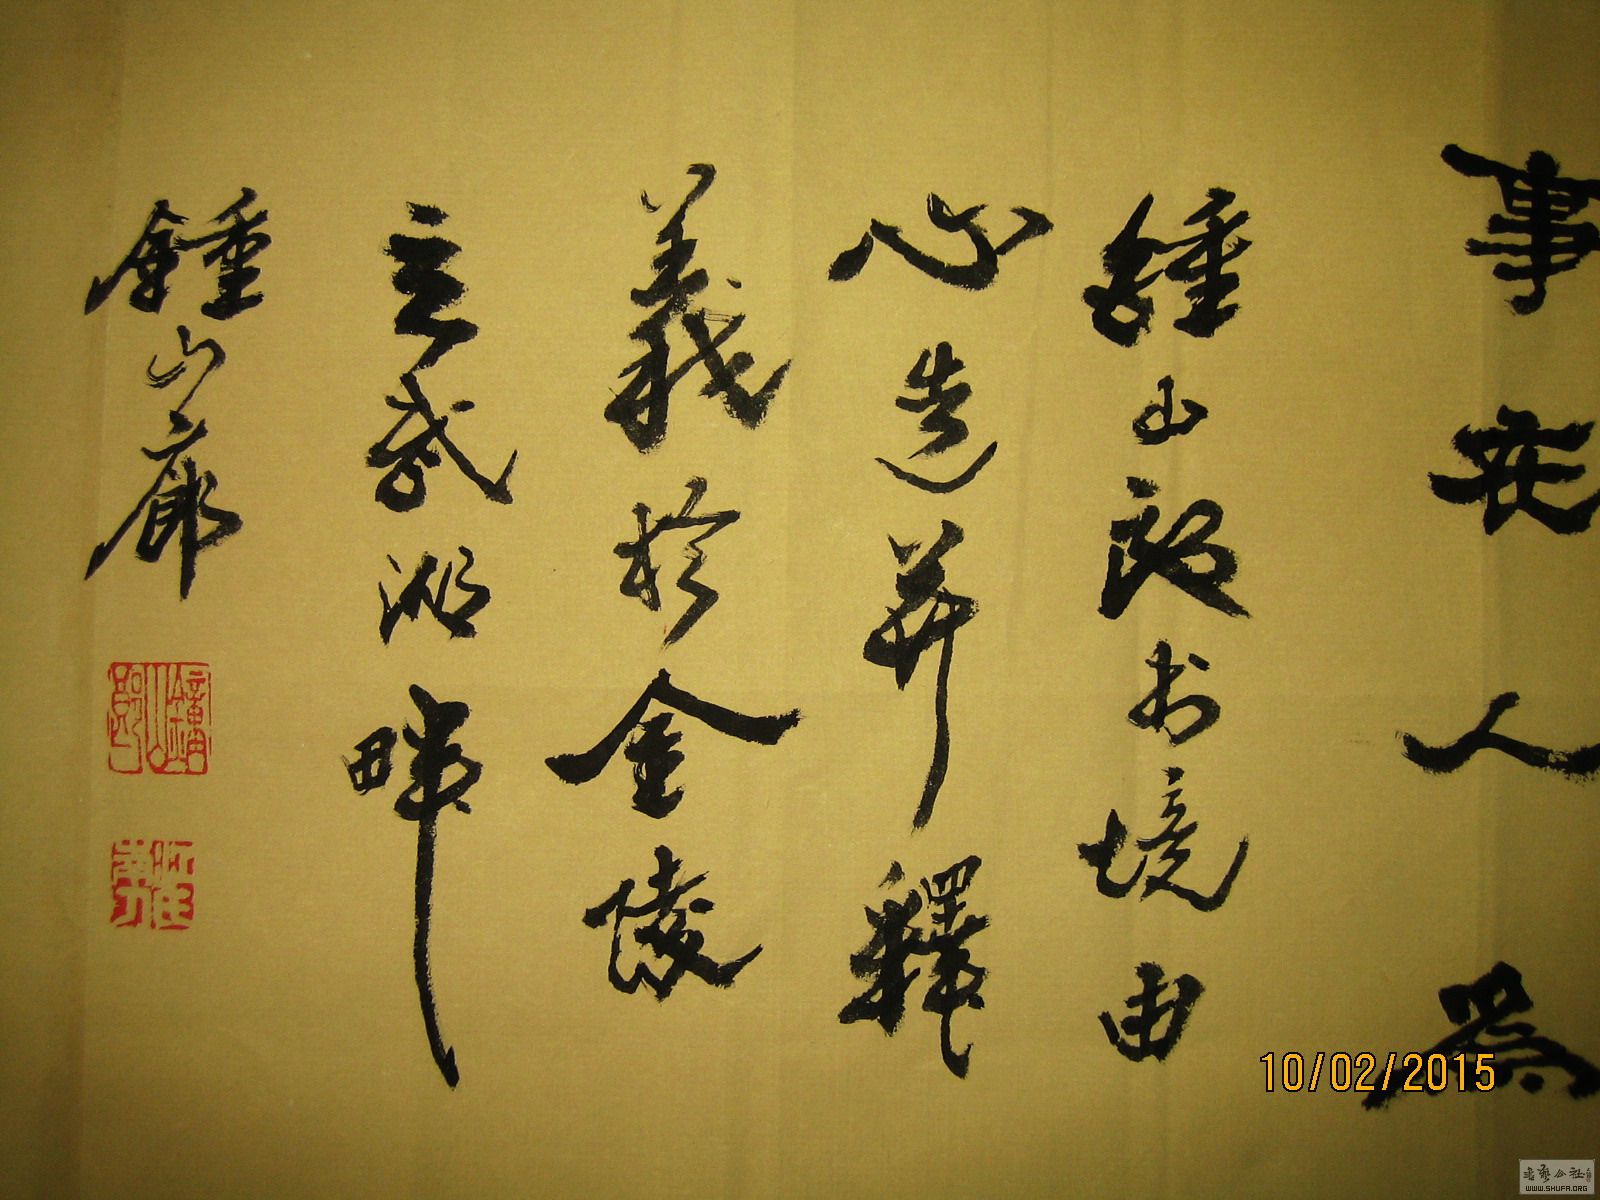 事在人為
鍾山郎书境由
心造并釋
義於金陵
玄武湖畔
鍾山廊
10/02/2015
WWW.SHUFA.ORG